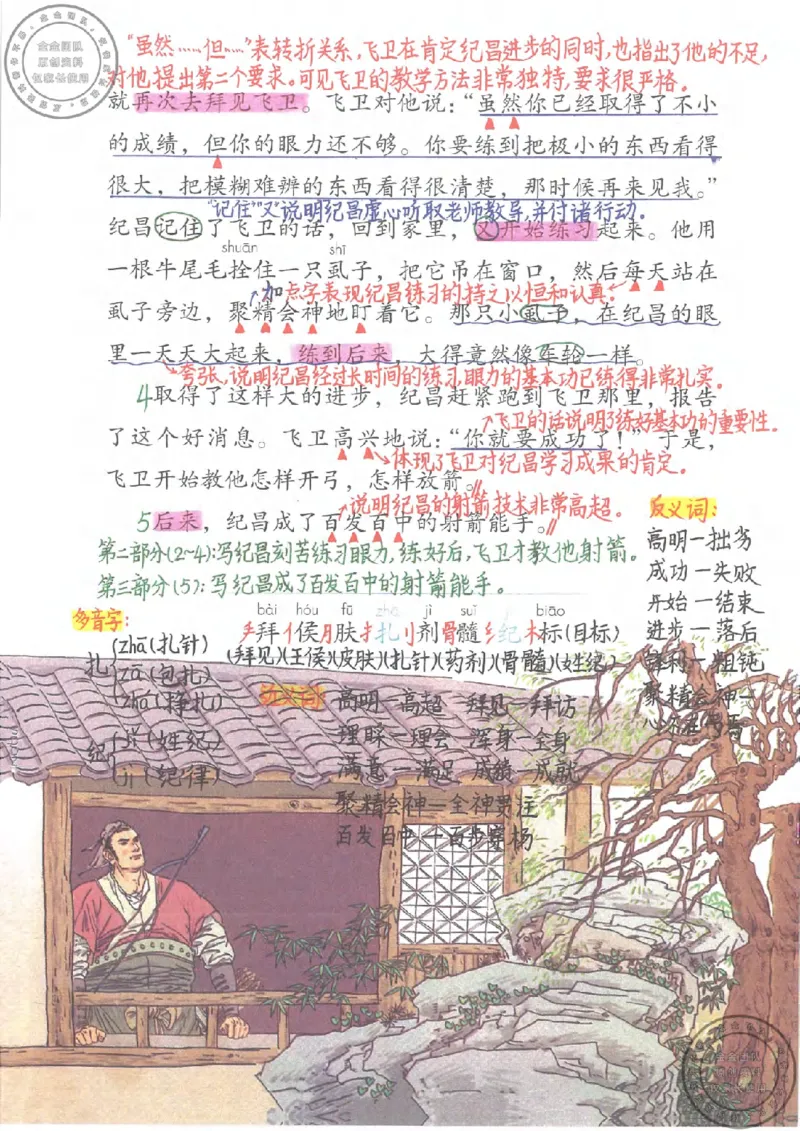 "虽然……但……"表转折关系,飞卫在肯定纪昌进步的同时,也指出了他的不足,
对他提出第二个要求。可见飞卫的教学方法非常独特,要求很严格。
就再次去拜见飞卫。飞卫对他说:“虽然你已经取得了不小
的成绩,但你的眼力还不够。你要练到把极小的东西看得
很大,把模糊难辨的东西看得很清楚,那时候再来见我。”
"记住""又"说明纪昌虚心听取老师教导,并付诸行动。
纪昌记住了飞卫的话,回到家里,又开始练习起来。他用
shuān shī
一根牛尾毛拴住一只虱子,把它吊在窗口,然后每天站在
加点字表现纪昌练习的持之以恒和认真。
虱子旁边,聚精会神地盯着它。那只小虱子,在纪昌的眼
里一天天大起来,练到后来,大得竟然像车轮一样。
夸张,说明纪昌经过长时间的练习,眼力的基本功已练得非常扎实。
4取得了这样大的进步,纪昌赶紧跑到飞卫那里,报告
飞卫的话说明了练好基本功的重要性。
了这个好消息。飞卫高兴地说:“你就要成功了!”于是,
体现了飞卫对纪昌学习成果的肯定。
飞卫开始教他怎样开弓,怎样放箭。
说明纪昌的射箭技术非常高超。
5后来,纪昌成了百发百中的射箭能手。
第二部分(2~4):写纪昌刻苦练习眼力,练好后,飞卫才教他射箭。
第三部分(5):写纪昌成了百发百中的射箭能手。
反义词:
高明—拙劣
成功—失败
开始—结束
进步—落后
锋利—粗钝
聚精会神—
心不在焉
bài hóu fū zhā jì suǐ jì biāo
拜 侯 肤 扎 剂 髓 纪 标(目标)
(拜见)(王侯)(皮肤)(扎针)(药剂)(骨髓)(姓纪)
多音字:
扎 zhā(扎针)
zā(包扎)
zhá(挣扎)
纪 jǐ(姓纪)
jì(纪律)
近义词
高明—高超 拜见—拜访
理睬—理会 浑身—全身
满意—满足 成绩—成就
聚精会神—全神贯注
百发百中—百步穿杨